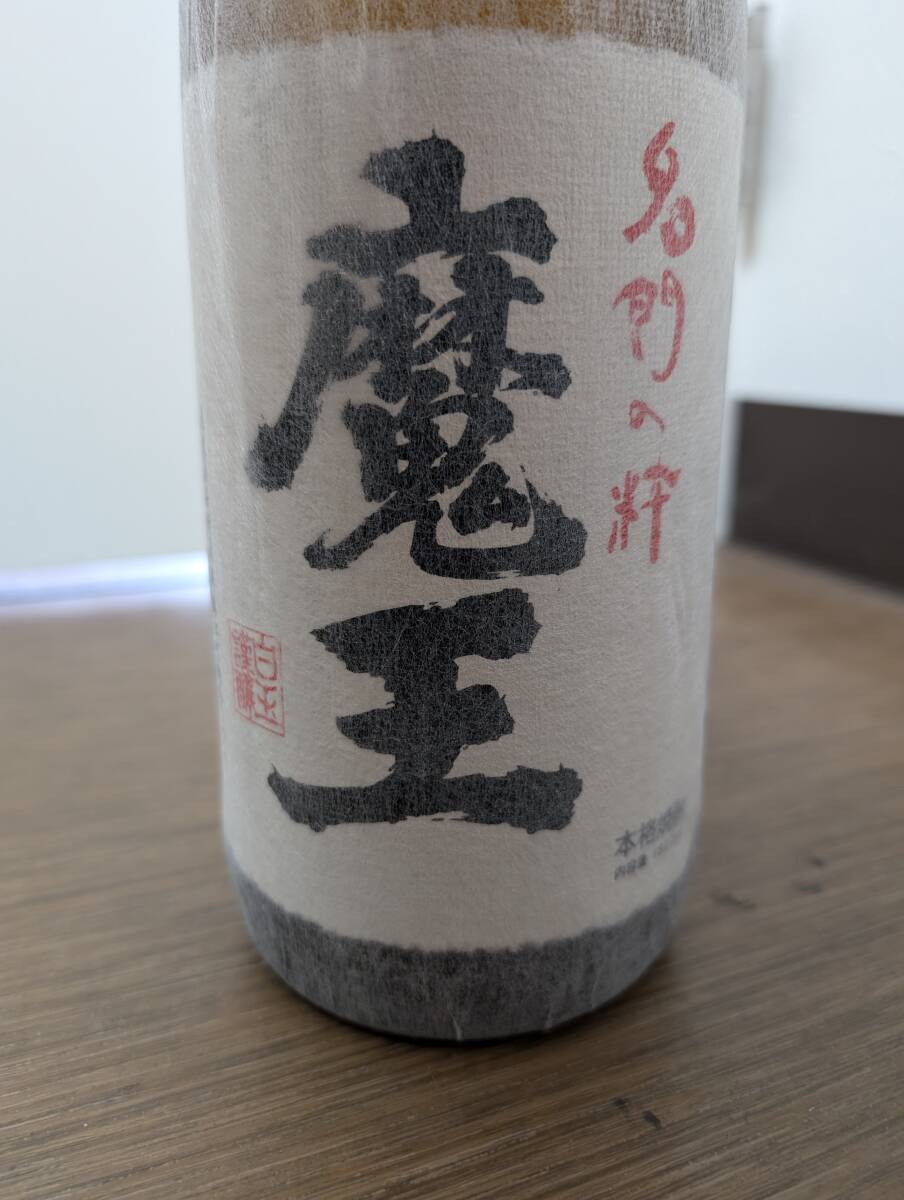 名門の粋
魔王
白玉
謹醸
本格焼酎
内容量